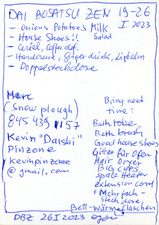 DAI BOSATSU ZEN 19-26
I 2023
- Onions Potatoes Milk
- House Shoes!! Salad
- Cereal, Coffee def.
- Handcreme, Ginger
- Doppelsteckdose
Marc
(snow plough)
845 439 1157
Kevin "Daishi"
Pinzone
kevinpinzone
@gmail.com
Bring next
time:
Bathrobe
Bath brush
Good house shoes
Gitter für Ofen
Hair Dryer
Big cups
space heater
Extension cord
Mehrfach-
steckdose
Bett-Wärmflaschen
DBZ 26 I 2023